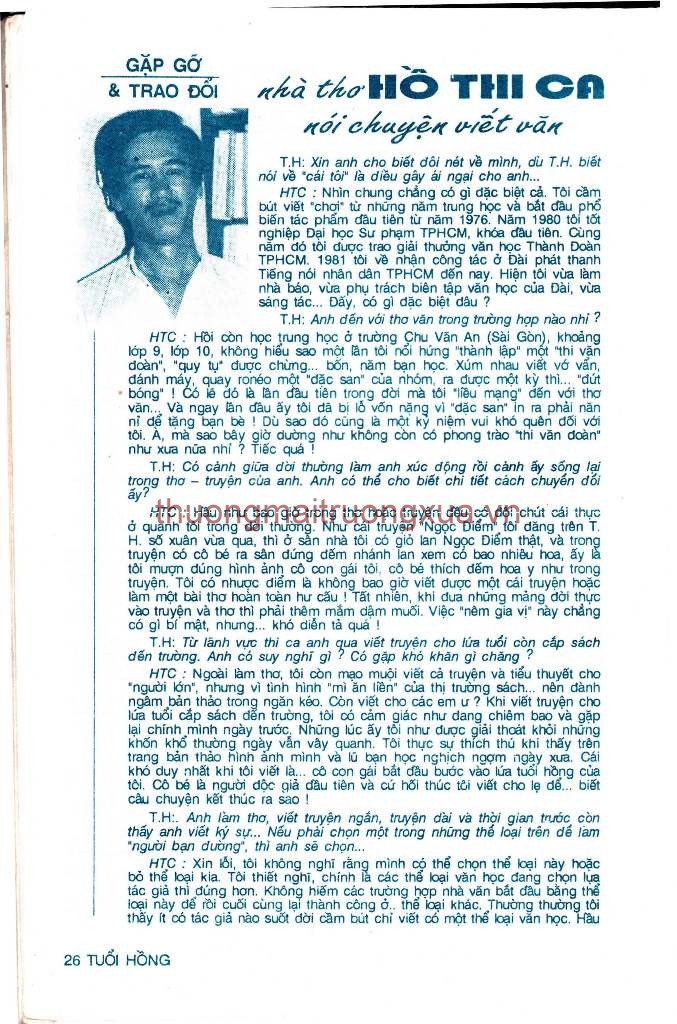 GẶP GỠ
& TRAO ĐỔI
nhà thơ HỒ THI CA
nói chuyện viết văn
T.H: Xin anh cho biết dôi nét về mình, dù T.H. biết
nói về "cái tôi" là diều gây ái ngại cho anh...
HTC : Nhìn chung chẳng có gì dặc biệt cả. Tôi cầm
bút viết "chơi" từ những năm trung học và bắt dầu phổ
biến tác phẩm dầu tiên từ năm 1976. Năm 1980 tôi tốt
nghiệp Đại học Sư phạm TPHCM, khóa dầu tiên. Cùng
năm dó tôi dược trao giải thưởng văn học Thành Đoàn
TPHCM. 1981 tôi về nhận công tác ở Đài phát thanh
Tiếng nói nhân dân TPHCM dến nay. Hiện tôi vừa làm
nhà báo, vừa phụ trách biên tập văn học của Đài, vừa
sáng tác... Đấy, có gì dặc biệt dâu ?
T.H: Anh dến với thơ văn trong trường hợp nào nhỉ ?
HTC : Hồi còn học trung học ở trường Chu Văn An (Sài Gòn), khoảng
lớp 9, lớp 10, không hiểu sao một lần tôi nổi hứng "thành lập" một "thi văn
doàn", "quy tụ" dược chừng... bốn, năm bạn học. Xúm nhau viết vớ vẩn,
dánh máy, quay ronéo một "dặc san" của nhóm, ra dược một kỳ thì... "dứt
bóng" ! Có lẽ dó là lần dầu tiên trong dời mà tôi "liều mạng" dến với thơ
văn... Và ngay lần dầu ấy tôi dã bị lỗ vốn nặng vì "dặc san" in ra phải năn
nỉ dể tặng bạn bè ! Dù sao dó cũng là một kỷ niệm vui khó quên dối với
tôi. À, mà sao bây giờ dường như không còn có phong trào "thi văn doàn"
như xưa nữa nhỉ ? Tiếc quá !
T.H: Có cảnh giữa dời thường làm anh xúc dộng rồi cảnh ấy sống lại
trong thơ – truyện của anh. Anh có thể cho biết chi tiết cách chuyển dổi
ấy?
HTC : Hầu như bao giờ trong thơ hoặc truyện dều có dôi chút cái thực
ở quanh tôi trong dời thường. Như cái truyện "Ngọc Điểm" tôi dăng trên T.
H. số xuân vừa qua, thì ở sân nhà tôi có giỏ lan Ngọc Điểm thật, và trong
truyện có cô bé ra sân dứng dếm nhánh lan xem có bao nhiêu hoa, ấy là
tôi mượn dúng hình ảnh cô con gái tôi, cô bé thích dếm hoa y như trong
truyện. Tôi có nhược diểm là không bao giờ viết dược một cái truyện hoặc
làm một bài thơ hoàn toàn hư cấu ! Tất nhiên, khi dưa những mảng dời thực
vào truyện và thơ thì phải thêm mắm dậm muối. Việc "nêm gia vị" này chẳng
có gì bí mật, nhưng... khó diễn tả quá !
T.H: Từ lãnh vực thi ca anh qua viết truyện cho lứa tuổi còn cắp sách
dến trường. Anh có suy nghĩ gì ? Có gặp khó khăn gì chăng ?
HTC : Ngoài làm thơ, tôi còn mạo muội viết cả truyện và tiểu thuyết cho
"người lớn", nhưng vì tình hình "mì ăn liền" của thị trường sách... nên dành
ngâm bản thảo trong ngăn kéo. Còn viết cho các em ư ? Khi viết truyện cho
lứa tuổi cắp sách dến trường, tôi có cảm giác như dang chiêm bao và gặp
lại chính mình ngày trước. Những lúc ấy tôi như dược giải thoát khỏi những
khốn khổ thường ngày vẫn vây quanh. Tôi thực sự thích thú khi thấy trên
trang bản thảo hình ảnh mình và lũ bạn học nghịch ngợm ngày xưa. Cái
khó duy nhất khi tôi viết là... cô con gái bắt dầu bước vào lứa tuổi hồng của
tôi. Cô bé là người dộc giả dầu tiên và cứ hối thúc tôi viết cho lẹ dể... biết
câu chuyện kết thúc ra sao !
T.H:. Anh làm thơ, viết truyện ngắn, truyện dài và thời gian trước còn
thấy anh viết ký sự... Nếu phải chọn một trong những thể loại trên dể làm
"người bạn dường", thì anh sẽ chọn...
HTC : Xin lỗi, tôi không nghĩ rằng mình có thể chọn thể loại này hoặc
bỏ thể loại kia. Tôi thiết nghĩ, chính là các thể loại văn học dang chọn lựa
tác giả thì dúng hơn. Không hiếm các trường hợp nhà văn bắt dầu bằng thể
loại này dể rồi cuối cùng lại thành công ở.. thể loại khác. Thường thường tôi
thấy ít có tác giả nào suốt dời cầm bút chỉ viết có một thể loại văn học. Hầu
thuongmaitruongxua.vn
26 TUỔI HỒNG